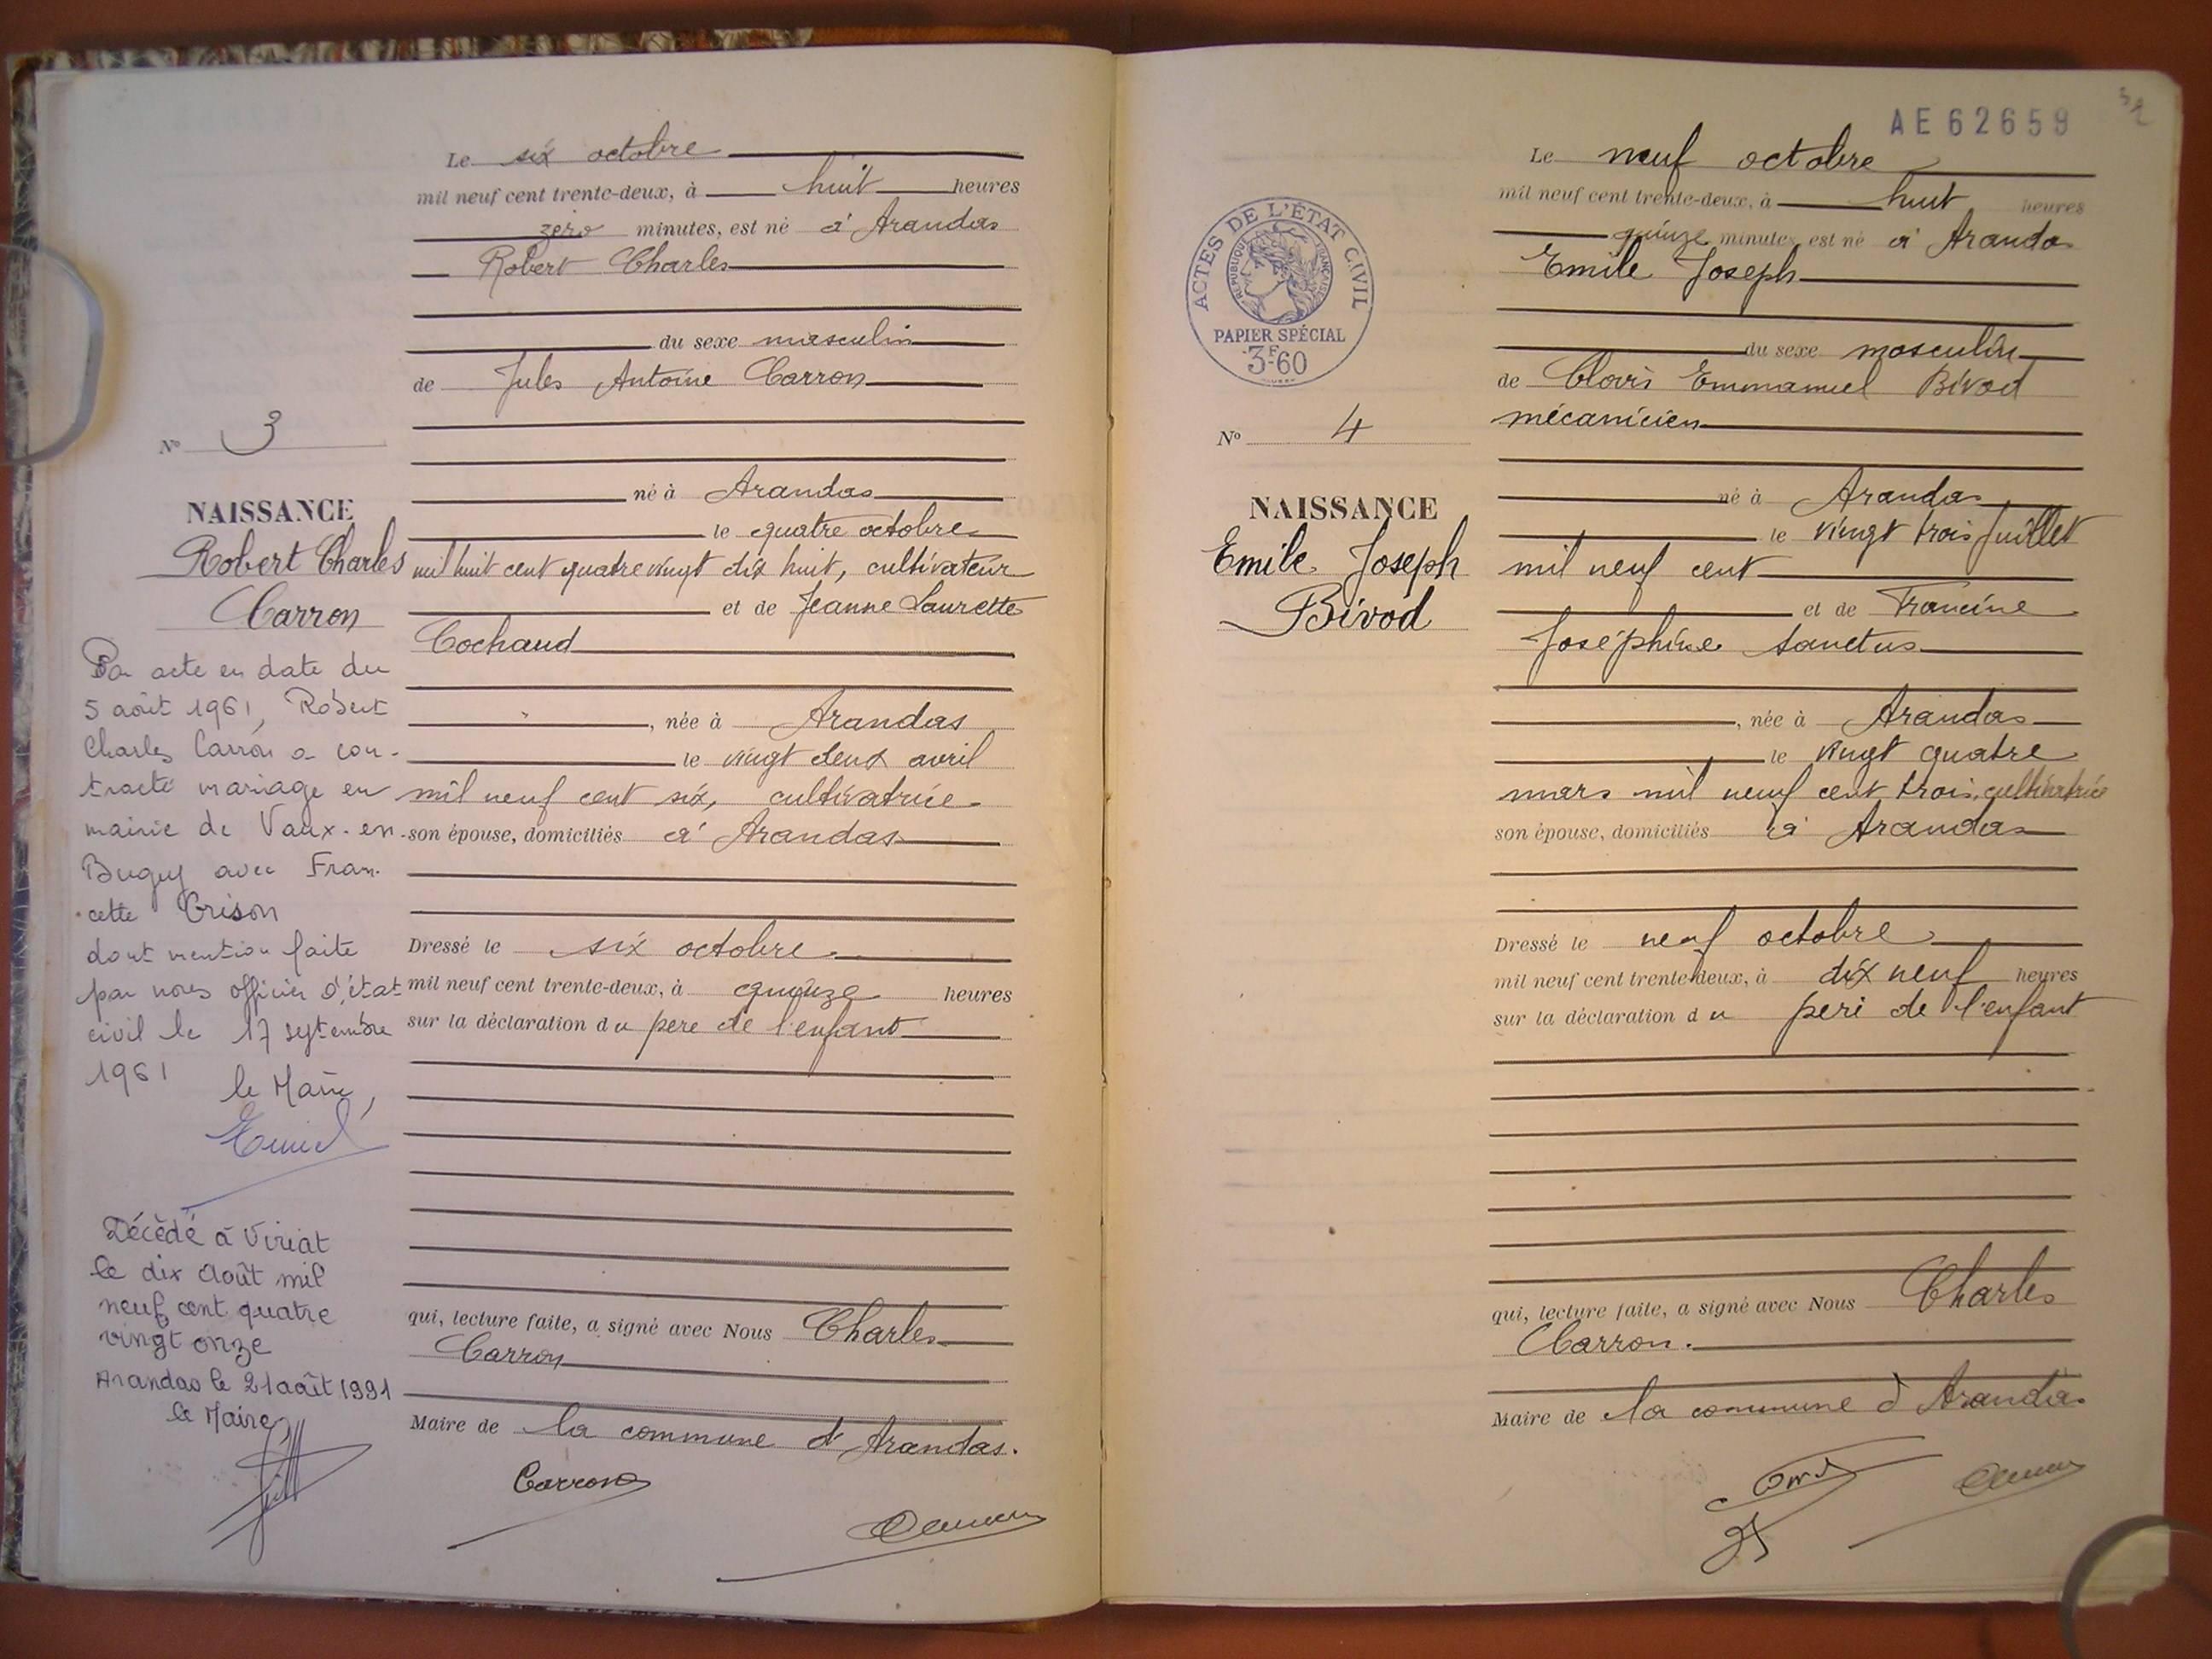 Le six octobre
mil neuf cent trente-deux, à huit heures
zéro minutes, est né à Arandas
Robert Charles
du sexe masculin
de Jules Antoine Carron
né à Arandas
le quatre octobre
mil huit cent quatre vingt dix huit, cultivateur
et de Jeanne Laurette
Cochaud
, née à Arandas
le vingt deux avril
mil neuf cent six, cultivatrice
son épouse, domiciliés à Arandas
Dressé le six octobre
mil neuf cent trente-deux, à quinze heures
sur la déclaration du père de l'enfant
qui, lecture faite, a signé avec Nous Charles
Carron
Maire de la commune d'Arandas.
Carron
No 3
NAISSANCE
Robert Charles
Carron
Par acte en date du
5 août 1961, Robert
Charles Carron a con-
tracté mariage en
mairie de Vaux-en-
Bugey avec Fran-
cette Grison
dont mention faite
par nous officier d'état
civil le 17 septembre
1961
le Maire,
Décédé à Viriat
le dix Août mil
neuf cent quatre
vingt onze
Arandas le 21 août 1991
le Maire,
AE62659
Le neuf octobre
mil neuf cent trente-deux, à huit heures
quinze minutes, est né à Arandas
Emile Joseph
du sexe masculin
de Clovis Emmanuel Bivod
mécanicien
né à Arandas
le vingt trois Juillet
mil neuf cent
et de Francine
Joséphine Sanctus
, née à Arandas
le vingt quatre
mars mil neuf cent trois, cultivatrice
son épouse, domiciliés à Arandas
Dressé le neuf octobre
mil neuf cent trente-deux, à dix neuf heures
sur la déclaration du père de l'enfant
qui, lecture faite, a signé avec Nous Charles
Carron.
Maire de la commune d'Arandas
ACTES DE L'ÉTAT CIVIL
RÉPUBLIQUE FRANÇAISE
PAPIER SPÉCIAL
3F60
No 4
NAISSANCE
Emile Joseph
Bivod